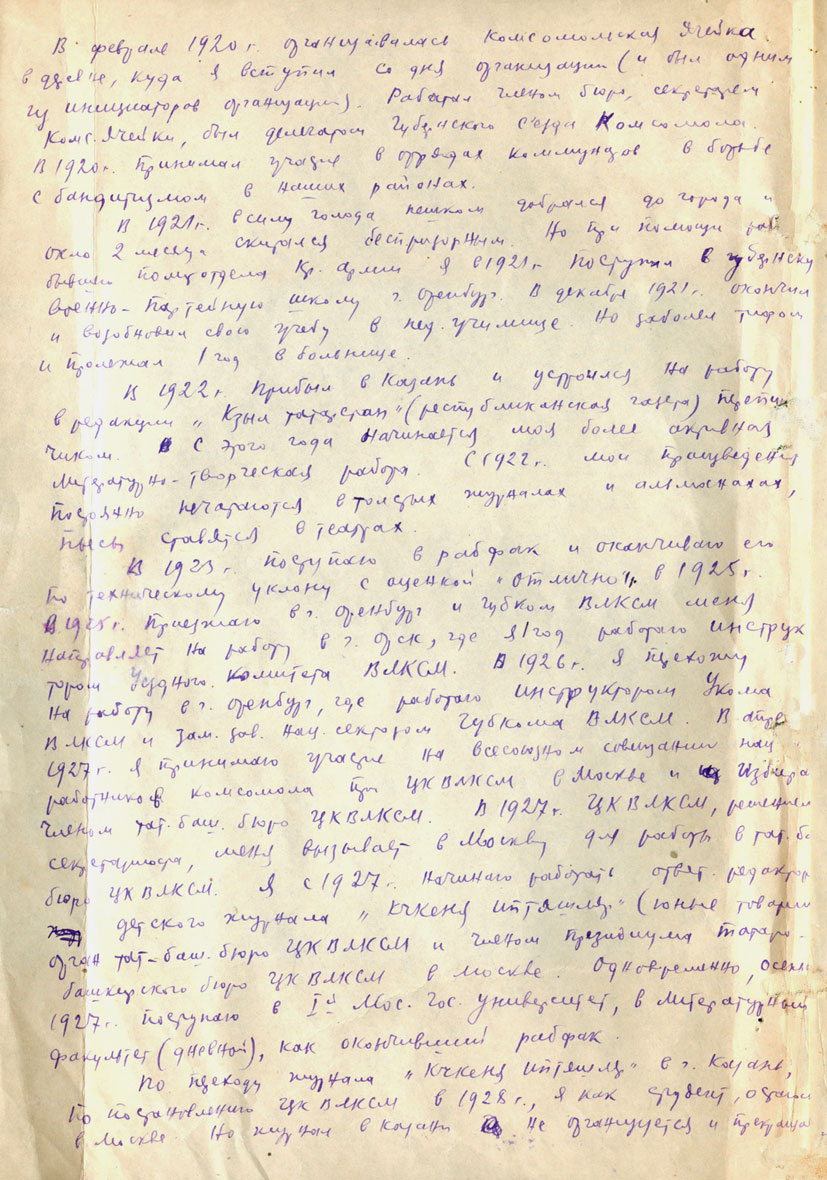 В феврале 1920 г. организавалась Комсомольская ячейка
в деревне, куда я вступил со дня организации (и был одним
из инициаторов организации). Работал членом бюро, секретарем
Комс. ячейки, был делегатом Губернского съезда Комсомола.
В 1920 г. принимал участие в отрядах коммунаров в борьбе
с бандитизмом в наших районах.
В 1921 г. в силу голода пешком добрался до города и
около 2 месяца скитался беспризорным. Но при помощи
бывшего политотдела Кр. армии я в 1921 г. поступил в губернску
военно-партейную школу г. Оренбург. В декабре 1921 г. окончил
и возобновил свою учебу в пед. училище. Но заболел тифом
и пролежал 1 год в больнице.
В 1922 г. прибыл в Казань и устроился на работу
в редакции „Кзыл татарстан" (республиканская газета) перепис
чиком. С этого года начинается моя более активная
литературно-творческая работа. С 1922 г. мои праизведения
постоянно печатаются в толстых журналах и альмонахах,
пьесы ставятся в театрах.
В 1923 г. поступаю в рабфак и оканчиваю его
по техническому уклону с оценкой „отлично" в 1925 г.
В 1925 г. приезжаю в г. Оренбург и Губком ВЛКСМ меня
направляет на работу в г. Орск, где я 1 год работаю инструк
тором Уездного комитета ВЛКСМ. В 1926 г. я перехожу
на работу в г. Оренбург, где работаю инструктором Укома
ВЛКСМ и зам. зав. нац. сектором Губкома ВЛКСМ. В апре
1927 г. я принимаю участие на всесоюзном совещании нац
работников комсомола при ЦК ВЛКСМ в Москве и избира
членом тат.-баш. бюро ЦК ВЛКСМ. В 1927 г. ЦК ВЛКСМ, решением
секретариата, меня вызывает в Москву для работы в тат. ба
бюро ЦК ВЛКСМ. Я с 1927 г. начинаю работать ответ. редактор
детского журнала „Кчкеня иптяшляр" (юные товарищи
орган тат-баш. бюро ЦК ВЛКСМ и членом президиума татаро-
башкирского бюро ЦК ВЛКСМ в Москве. Одновременно, осенью
1927 г. поступаю в Iй Мос. гос. университет, в литературный
факультет (дневной), как окончивший рабфак.
По переходу журнала „Кчкеня иптяшляр" в г. Казань,
по постановлению ЦК ВЛКСМ в 1928 г., я как студент, остаюсь
в Москве. Но журнал в Казани не организуется и прекраща